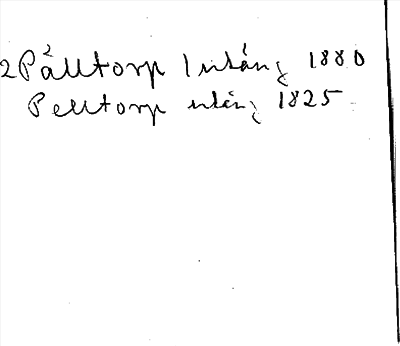 2 Pålltorp 1 utäng 1880
Pelltorp utäng 1825